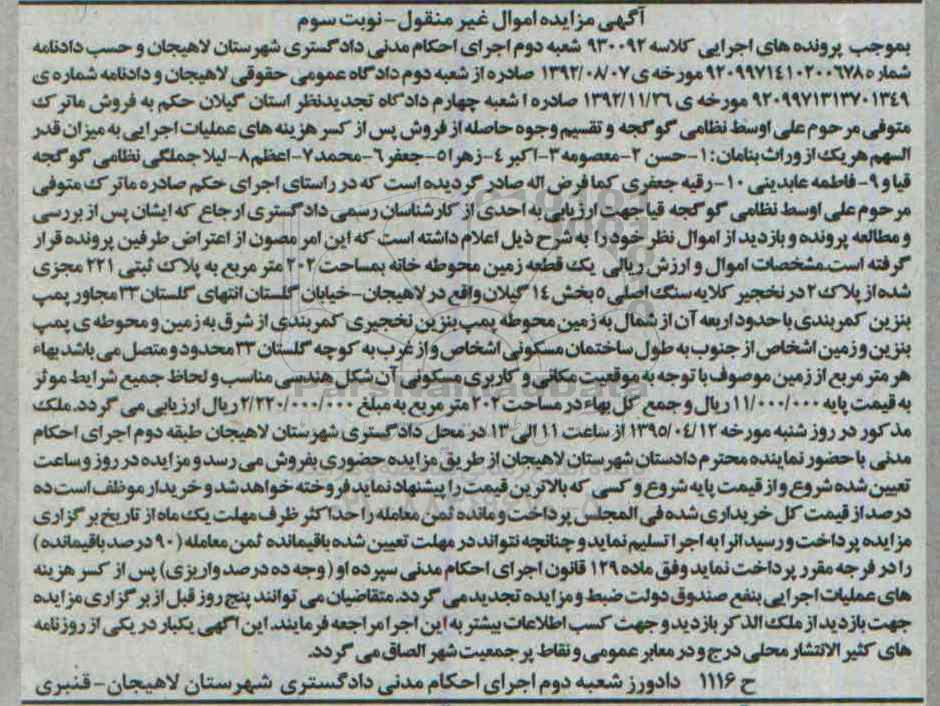 آگهی مزایده اموال غیر منقول - نوبت سوم
بموجب پرونده های اجرایی کلاسه ۹۳۰۰۹۲ شعبه دوم اجرای احکام مدنی دادگستری شهرستان لاهیجان و حسب دادنامه
شماره ۹۲۰۹۹۷۱۴۱۰۲۰۰۶۷۸ مورخه ی ۱۳۹۲/۰۸/۰۷ صادره از شعبه دوم دادگاه عمومی حقوقی لاهیجان و دادنامه شماره ی
۹۲۰۹۹۷۱۳۱۳۷۰۱۳۴۹ مورخه ی ۱۳۹۲/۱۱/۲۶ صادره ا شعبه چهارم دادگاه تجدیدنظر استان گیلان حکم به فروش ماترک
متوفی مرحوم علی اوسط نظامی گوگجه و تقسیم وجوه حاصله از فروش پس از کسر هزینه های عملیات اجرایی به میزان قدر
السهم هریک از وراث بنامان: ۱- حسن ۲- معصومه ۳- اکبر ۴- زهرا ۵- جعفر ۶- محمد ۷- اعظم ۸- لیلا جملگی نظامی گوگجه
قیا و ۹- فاطمه عابدینی ۱۰- رقیه جعفری کما فرض اله صادر گردیده است که در راستای اجرای حکم صادره ماترک متوفی
مرحوم علی اوسط نظامی گوگجه قیا جهت ارزیابی به احدی از کارشناسان رسمی دادگستری ارجاع که ایشان پس از بررسی
و مطالعه پرونده و بازدید از اموال نظر خود را به شرح ذیل اعلام داشته است که این امر مصون از اعتراض طرفین پرونده قرار
گرفته است. مشخصات اموال و ارزش ریالی یک قطعه زمین محوطه خانه بمساحت ۲۰۲ متر مربع به پلاک ثبتی ۲۲۱ مجزی
شده از پلاک ۲ در نخجیر کلایه سنگ اصلی ۵ بخش ۱۴ گیلان واقع در لاهیجان - خیابان گلستان انتهای گلستان ۳۳ مجاور پمپ
بنزین کمربندی با حدود اربعه آن از شمال به زمین محوطه پمپ بنزین نخجیری کمربندی از شرق به زمین و محوطه ی پمپ
بنزین و زمین اشخاص از جنوب به طول ساختمان مسکونی اشخاص و از غرب به کوچه گلستان ۳۳ محدود و متصل می باشد بهاء
هر متر مربع از زمین موصوف با توجه به موقعیت مکانی و کاربری مسکونی آن شکل هندسی مناسب و لحاظ جمیع شرایط موثر
به قیمت پایه ۱۱/۰۰۰/۰۰۰ ریال و جمع کل بهاء در مساحت ۲۰۲ متر مربع به مبلغ ۲/۲۲۰/۰۰۰/۰۰۰ ریال ارزیابی می گردد. ملک
مذکور در روز شنبه مورخه ۱۳۹۵/۰۴/۱۲ از ساعت ۱۱ الی ۱۳ در محل دادگستری شهرستان لاهیجان طبقه دوم اجرای احکام
مدنی با حضور نماینده محترم دادستان شهرستان لاهیجان از طریق مزایده حضوری بفروش می رسد و مزایده در روز و ساعت
تعیین شده شروع و از قیمت پایه شروع و کسی که بالاترین قیمت را پیشنهاد نماید فروخته خواهد شد و خریدار موظف است ده
درصد از قیمت کل خریداری شده فی المجلس پرداخت و مانده ثمن معامله را حداکثر ظرف مهلت یک ماه از تاریخ برگزاری
مزایده پرداخت و رسید انرا به اجرا تسلیم نماید و چنانچه نتواند در مهلت تعیین شده باقیمانده ثمن معامله (۹۰ درصد باقیمانده)
را در فرجه مقرر پرداخت نماید وفق ماده ۱۲۹ قانون اجرای احکام مدنی سپرده او (وجه ده درصد واریزی) پس از کسر هزینه
های عملیات اجرایی بنفع صندوق دولت ضبط و مزایده تجدید می گردد. متقاضیان می توانند پنج روز قبل از برگزاری مزایده
جهت بازدید از ملک الذکر بازدید و جهت کسب اطلاعات بیشتر به این اجرا مراجعه فرمایند. این اگهی یکبار در یکی از روزنامه
های کثیر الانتشار محلی درج و در معابر عمومی و نقاط پر جمعیت شهر الصاق می گردد.
ح ۱۱۱۶ دادورز شعبه دوم اجرای احکام مدنی دادگستری شهرستان لاهیجان - قنبری